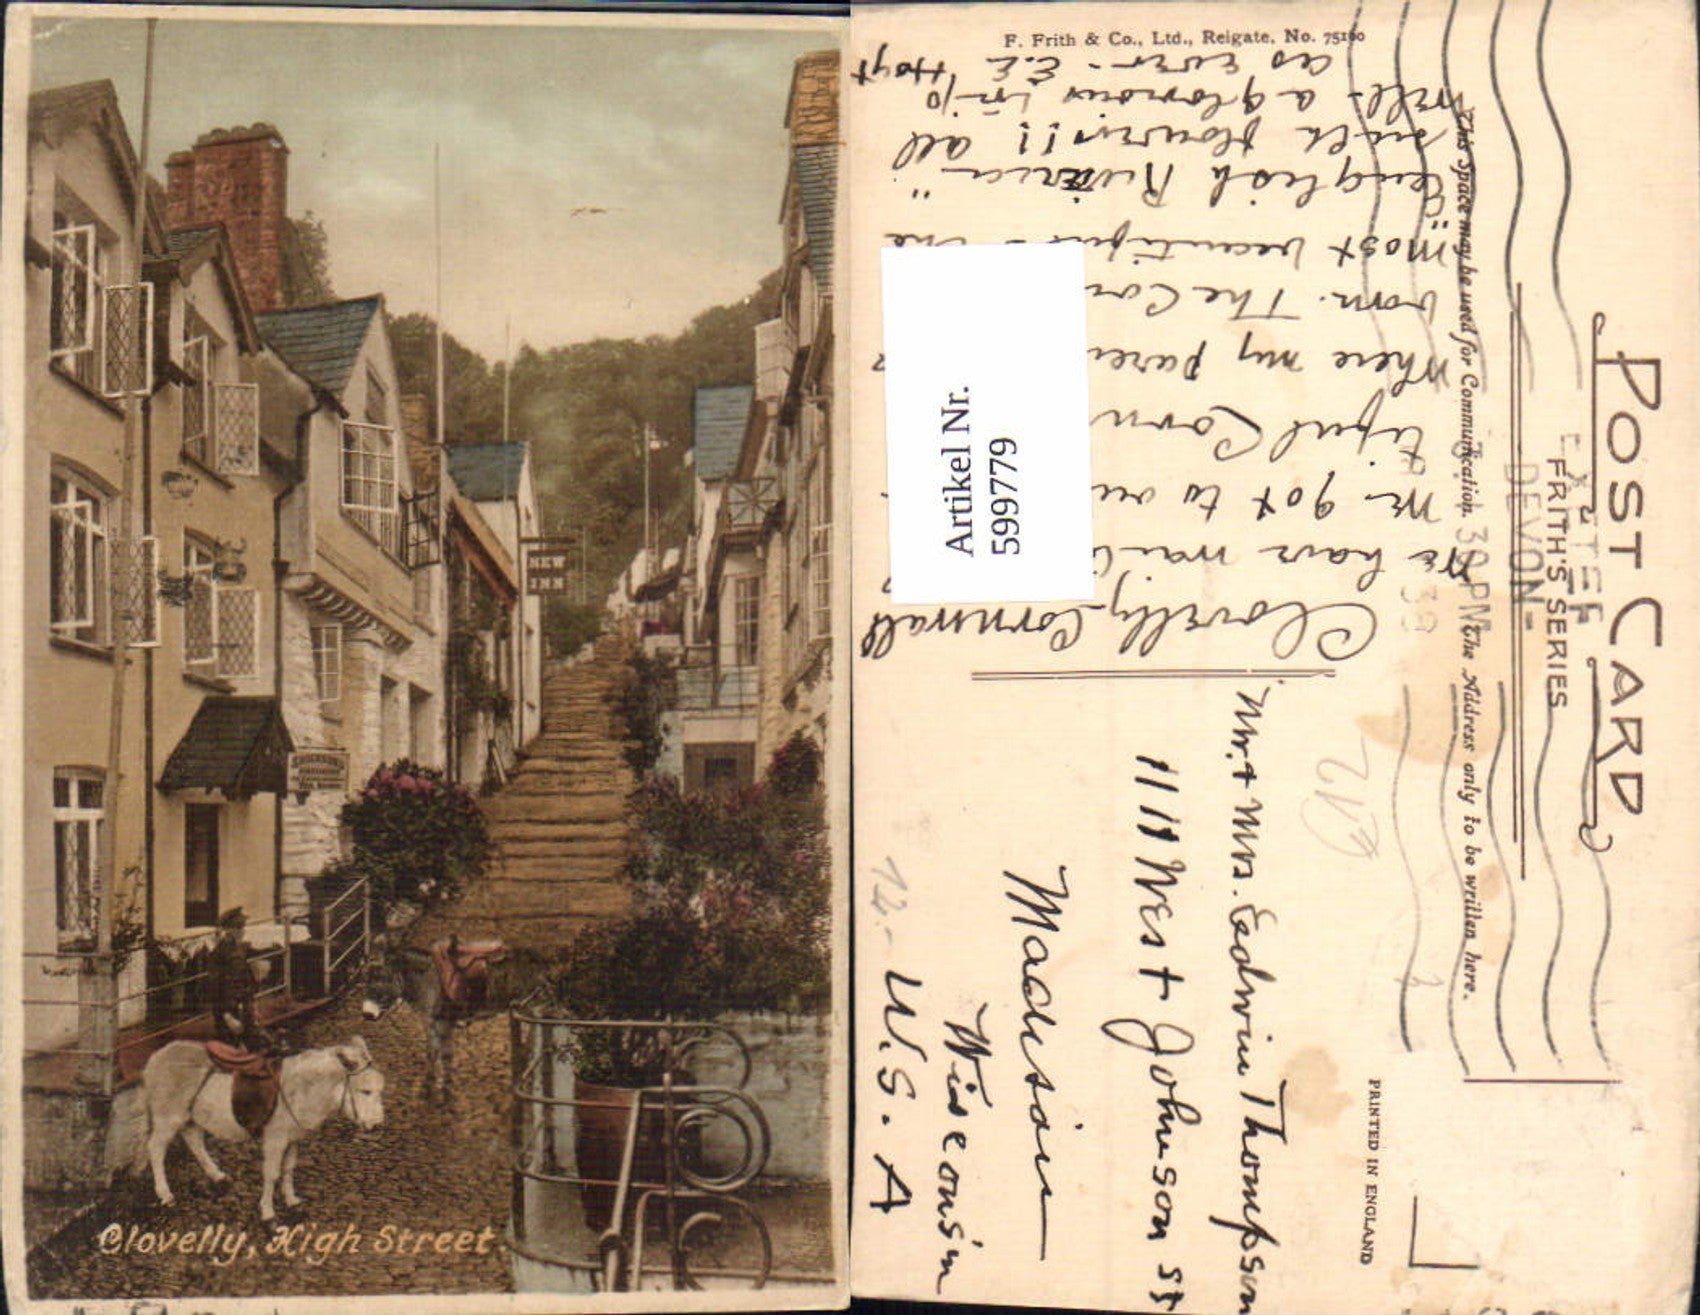 NEW
INN
Clovelly, High Street.
F. Frith & Co., Ltd., Reigate. No. 75160
POST CARD
FRITH'S SERIES
This Space may be used for Communication.
The Address only to be written here.
PRINTED IN ENGLAND
EXETER
DEVON
30 PM
Artikel Nr.
599779
Clovelly - Cornwall
We have
we got to
tiful Corn
where my pare
born. The
"most beautiful - the
English Riveria"
with flowers!! all
well - a glorious trip
as ever - E.E. Hoyt
Mr. + Mrs. Edwin Thompson
1111 West Johnson St
Madison
Wisconsin
U.S.A
12.-